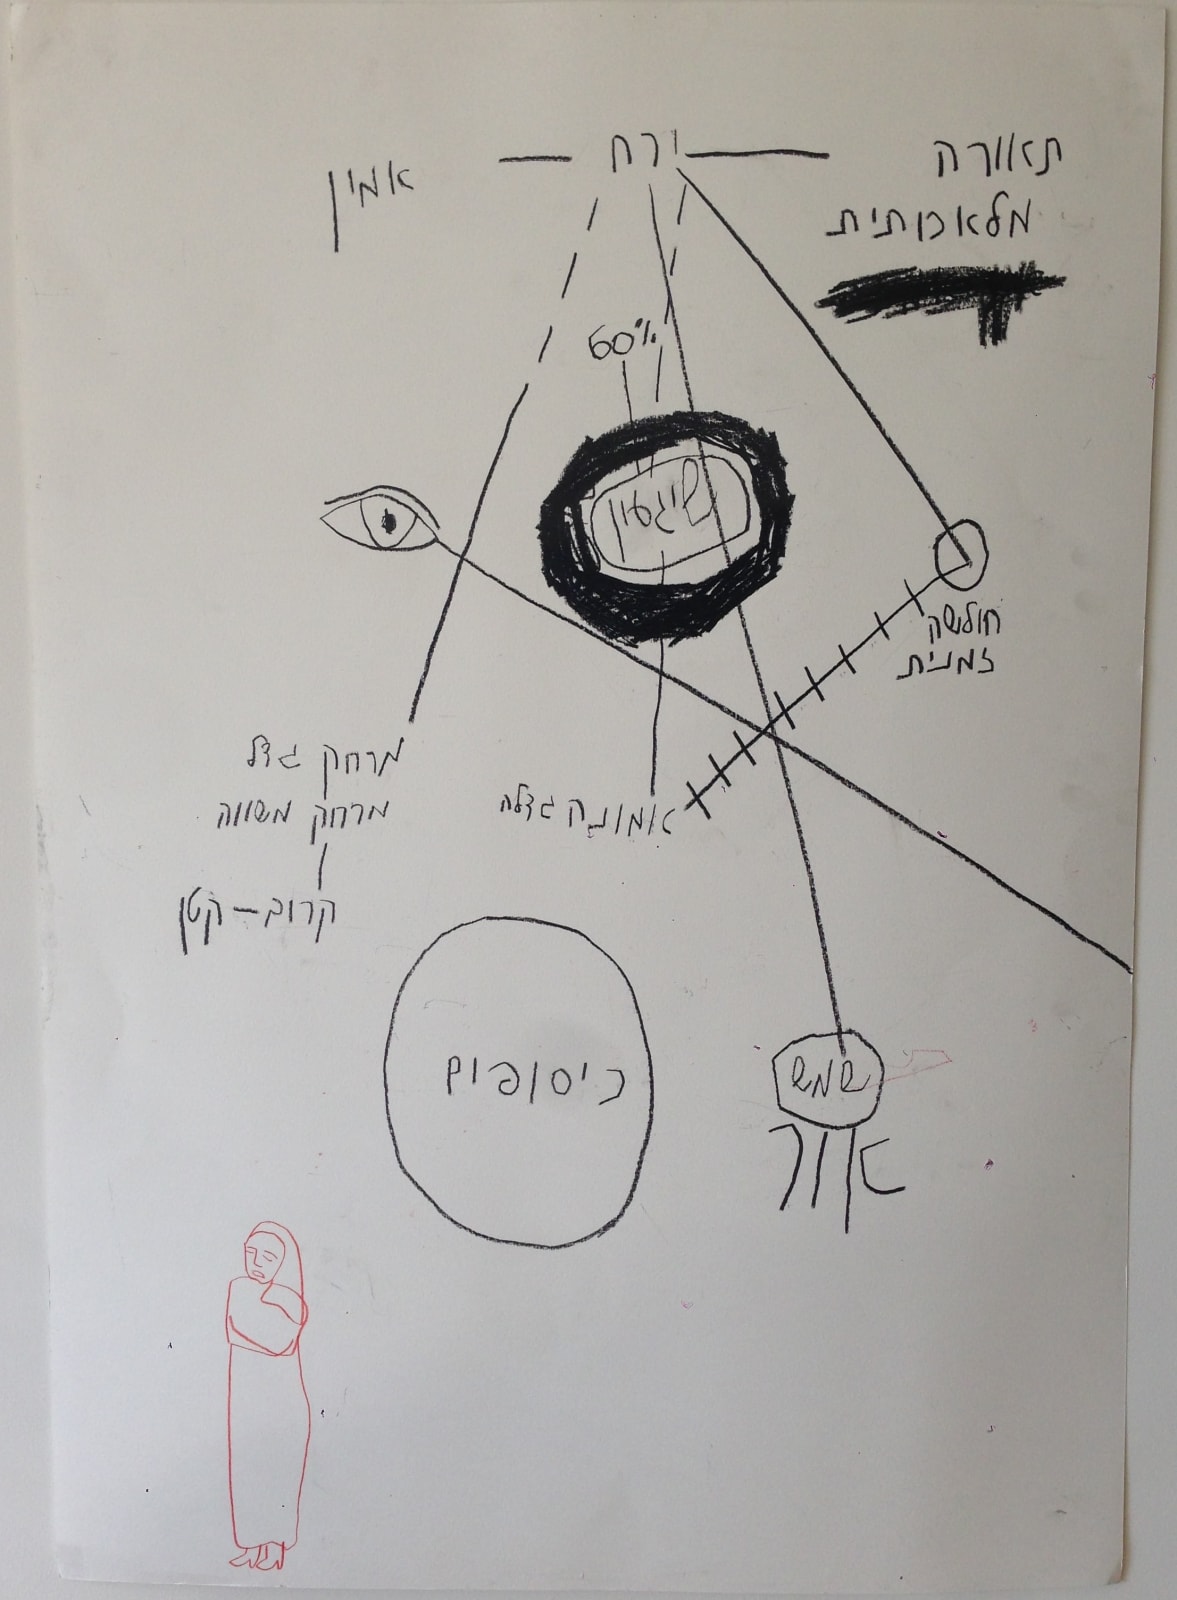 ירח
תאורה
מלאכותית
אמין
60%
שיגעון
חולשה
זמנית
מרחק גדל
מרחק משווה
אמונה גדלה
קרוב – קטן
כיסופים
שמש
אור